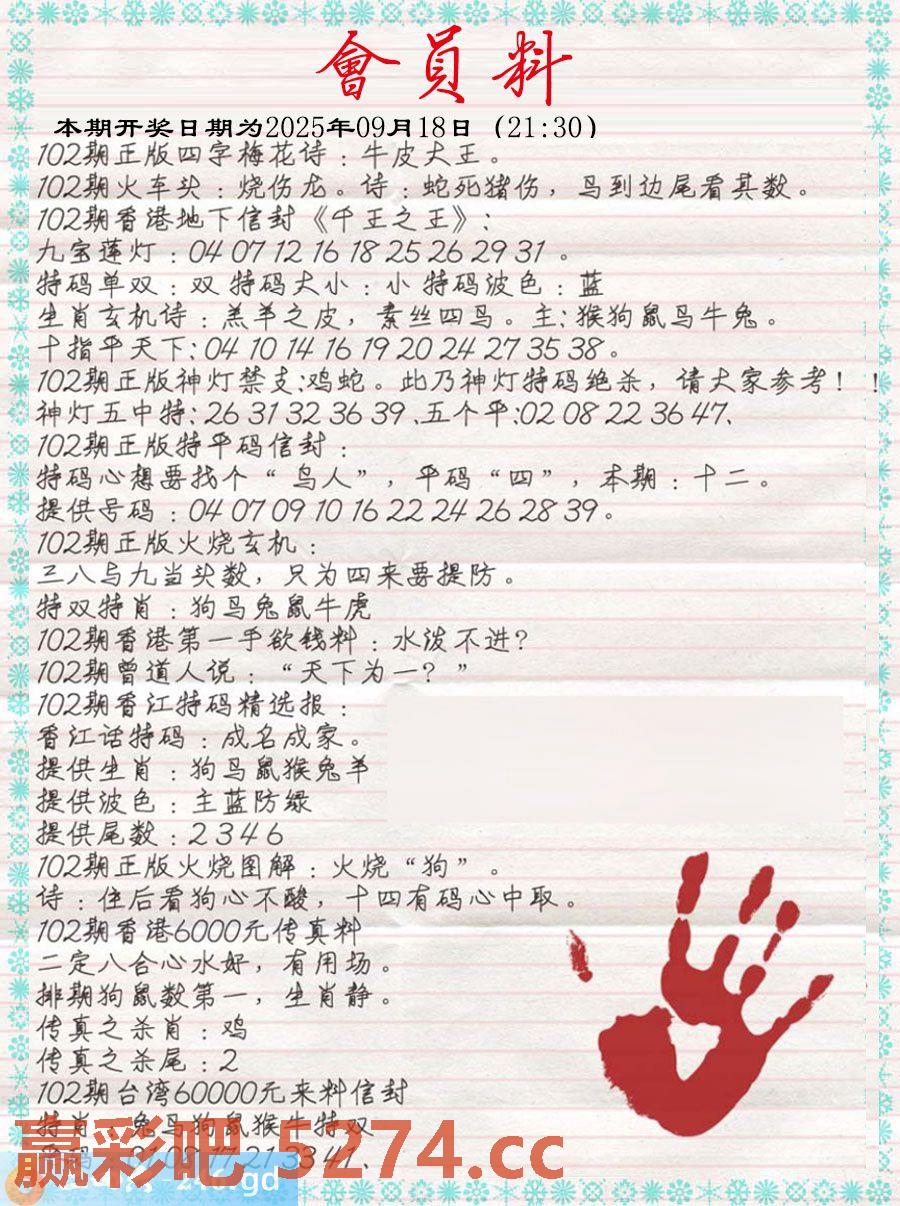 會員料
本期开奖日期为2025年09月18日（21:30）
102期正版四字梅花诗：牛皮大王。
102期火车头：烧伤龙。诗：蛇死猪伤，鸟到边尾看其数。
102期香港地下信封《千王之王》：
九宝莲灯：04 07 12 16 18 25 26 29 31 。
特码单双：双 特码大小：小 特码波色：蓝
生肖玄机诗：羔羊之皮，素丝四鸟。主：猴狗鼠鸟牛兔。
十指平天下：04 10 14 16 19 20 24 27 35 38 。
102期正版神灯禁支：鸡蛇。此乃神灯特码绝杀，请大家参考！！
神灯五中特：26 31 32 36 39 、五个平：02 08 22 36 47、
102期正版特平码信封：
特码心想要找个“鸟人”，平码“四”，本期：十二。
提供号码：04 07 09 10 16 22 24 26 28 39 。
102期正版火烧玄机：
三八与九当头数，只为四来要提防。
特双特肖：狗鸟兔鼠牛虎
102期香港第一手欲钱料：水泼不进？
102期曾道人说：“天下为一？”
102期香江特码精选报：
香江话特码：成名成家。
提供生肖：狗鸟鼠猴兔羊
提供波色：主蓝防绿
提供尾数：2 3 4 6
102期正版火烧图解：火烧“狗”。
诗：住后看狗心不酸，十四有码心中取。
102期香港6000元传真料
二定八合心水好，有用场。
排期狗鼠数第一，生肖静。
传真之杀肖：鸡
传真之杀尾：2
102期台湾60000元来料信封
特肖：兔鸟狗鼠猴牛特双
01 08 17 21 33 41、
赢彩吧 5274.cc